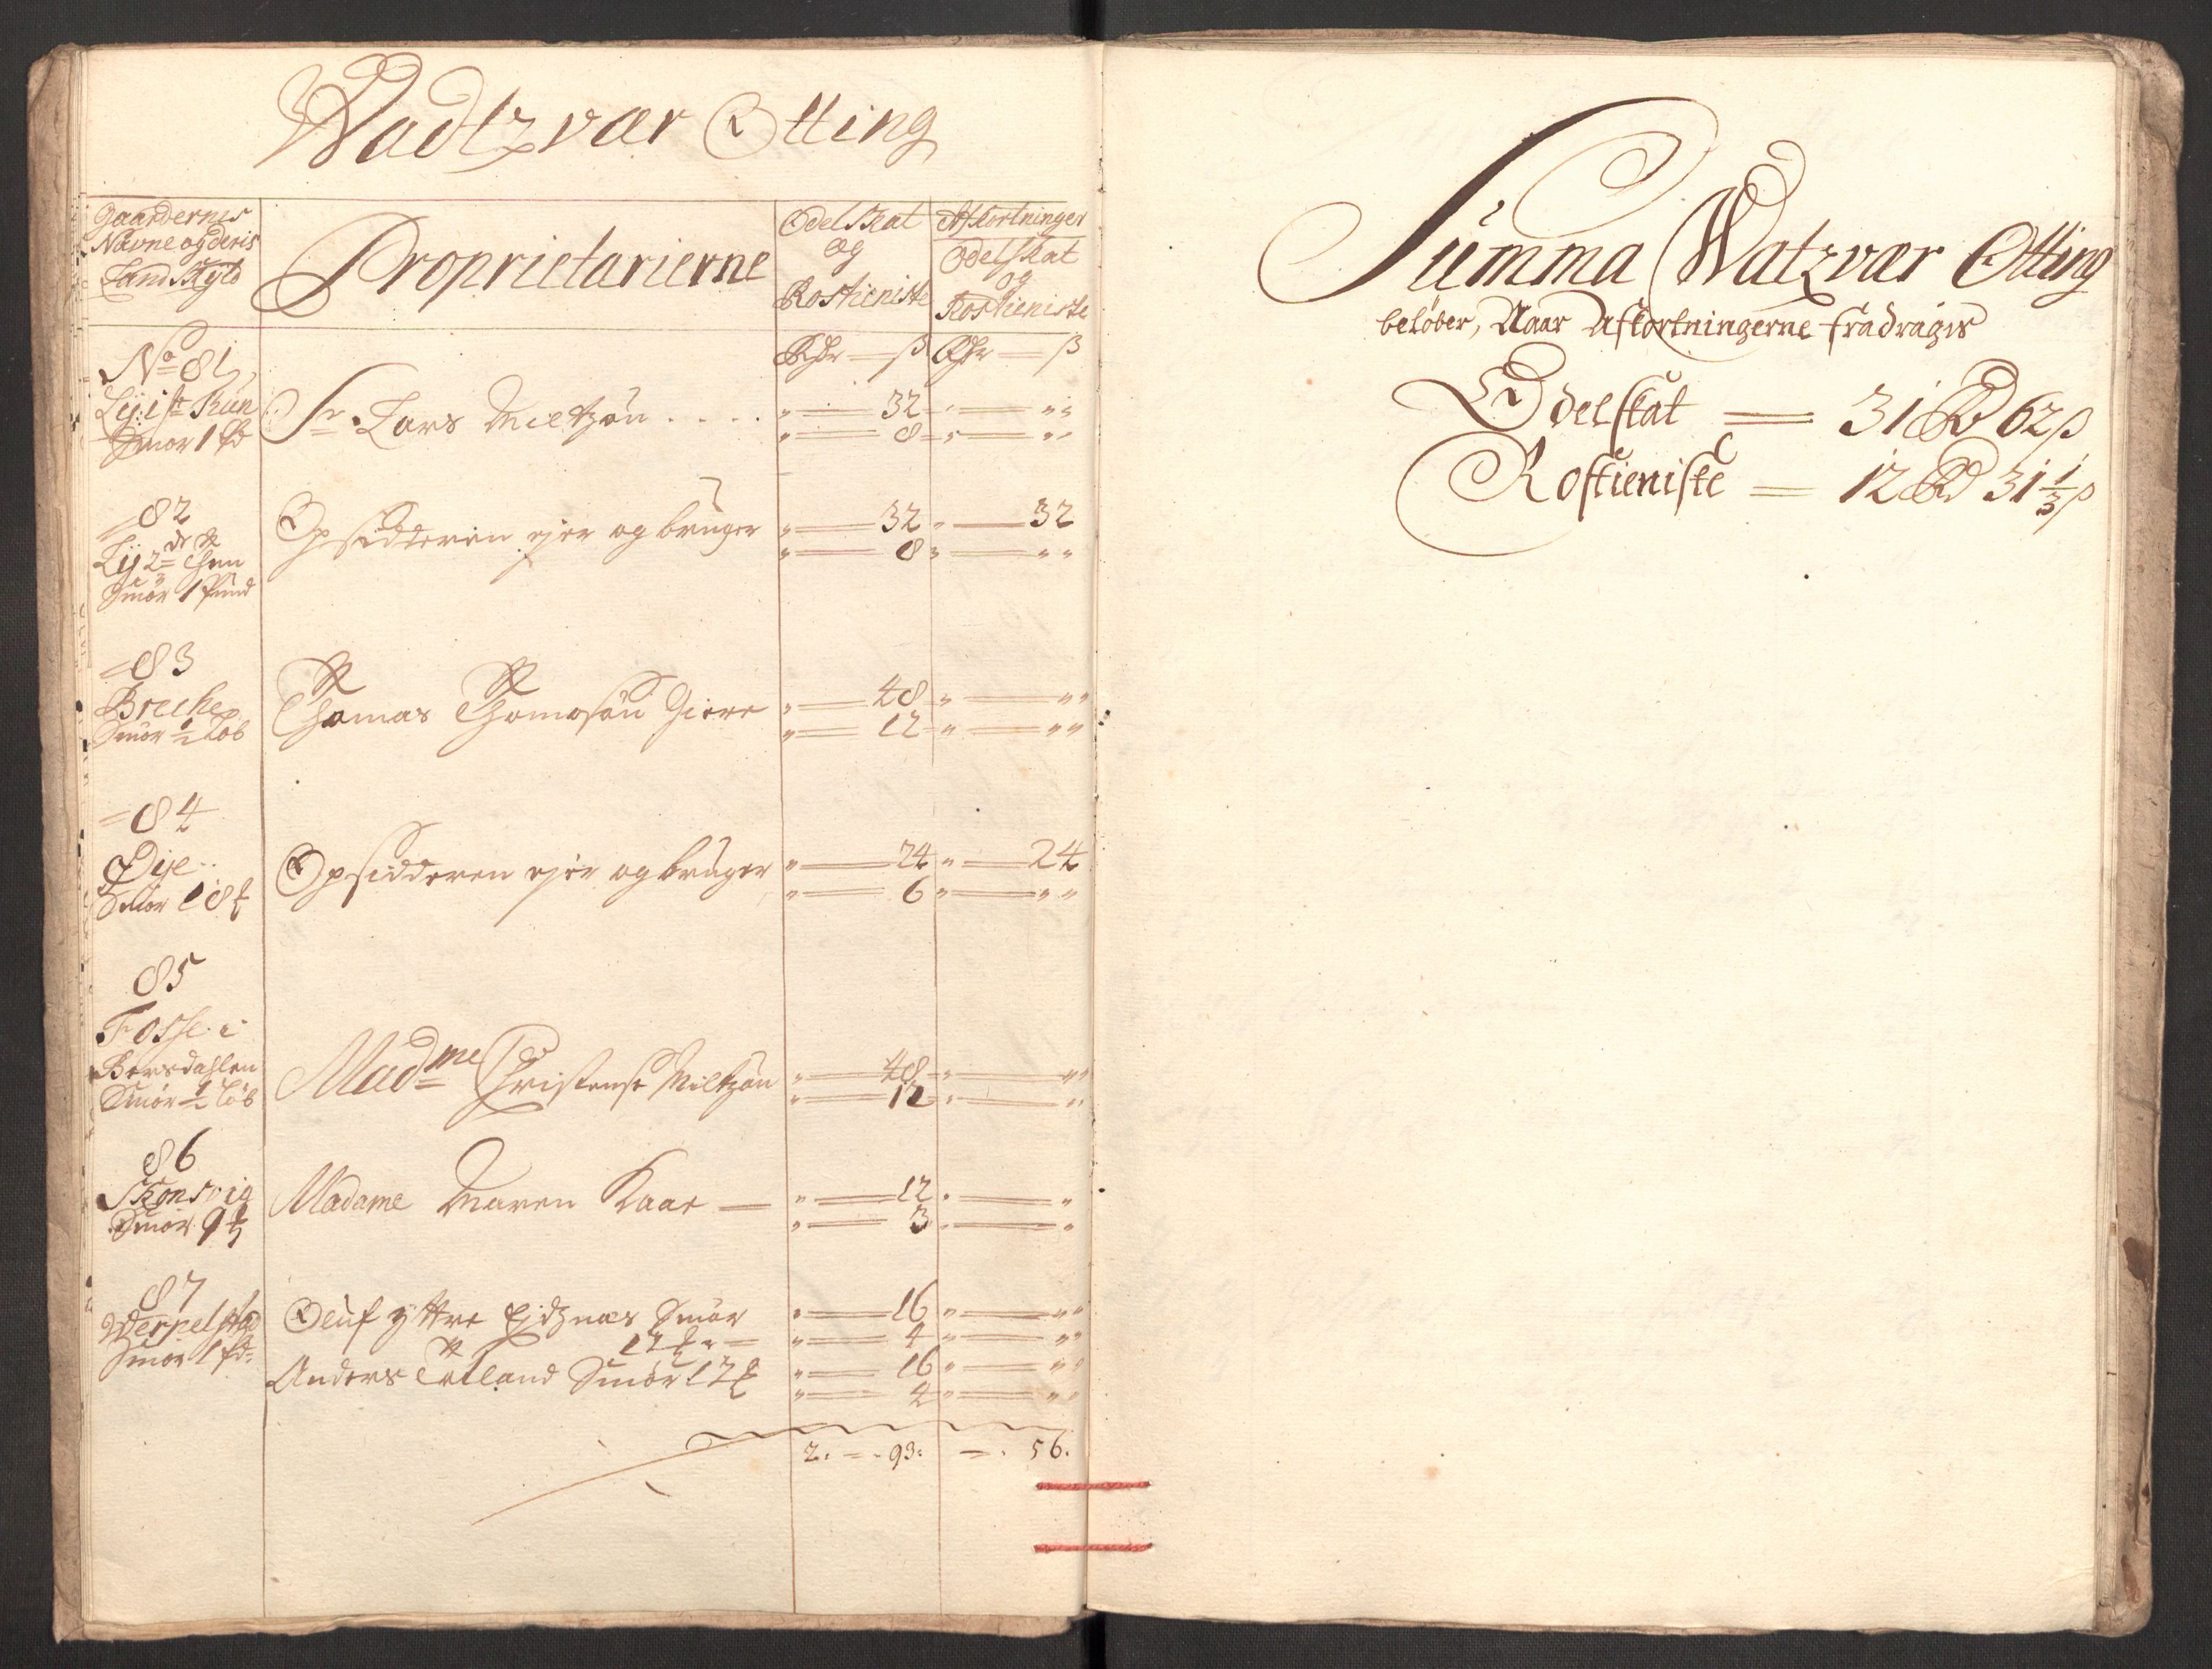 Wadtzvær Otting
Gaardernes
Navne og deris
Land Skyld
Proprietarierne
Odel Skat
og
Rostieniste
Afkortninger
Odelskat
og
Rostieniste
Rdr — ß Rdr — ß
No 81
Lij 1ste
Smør 1 Pd
Sr Lars Miltzøn . . . .
" — 32 " — "
" — 8 " — "
82
Lij 2
Smør 1 Pund
Opsidderen ejer og bruger
" — 32 " — 32
" — 8 " — "
83
Breche
Smør ½ Løb
Thomas Thomasøn Giere
" — 48 " — "
" — 12 " — "
84
Øije
Smør 18
Opsidderen ejer og bruger
" — 24 " — 24
" — 6 " — "
85
Fosse i
Bersdahlen
Smør ½ Løb
Madme Christense Miltzøn
" — 48 " — "
" — 12 " — "
86
Skonsvig
Smør 9
Madame Maren Kaae —
" — 12 " — "
" — 3 " — "
87
Werpelstad
Smør 1 Pd
Oluf yttre Ejdznæs Smør
12
" — 16 " — "
" — 4 " — "
Anders Smør 12
" — 16 " — "
" — 4 " — "
2. — 93: — . 56.
Summa Watzvær Otting
beløber, Naar Afkortningerne fradragis
Odelskat — 31 Rd 62 ß
Rostieniste — 12 Rd 31 1/3 ß